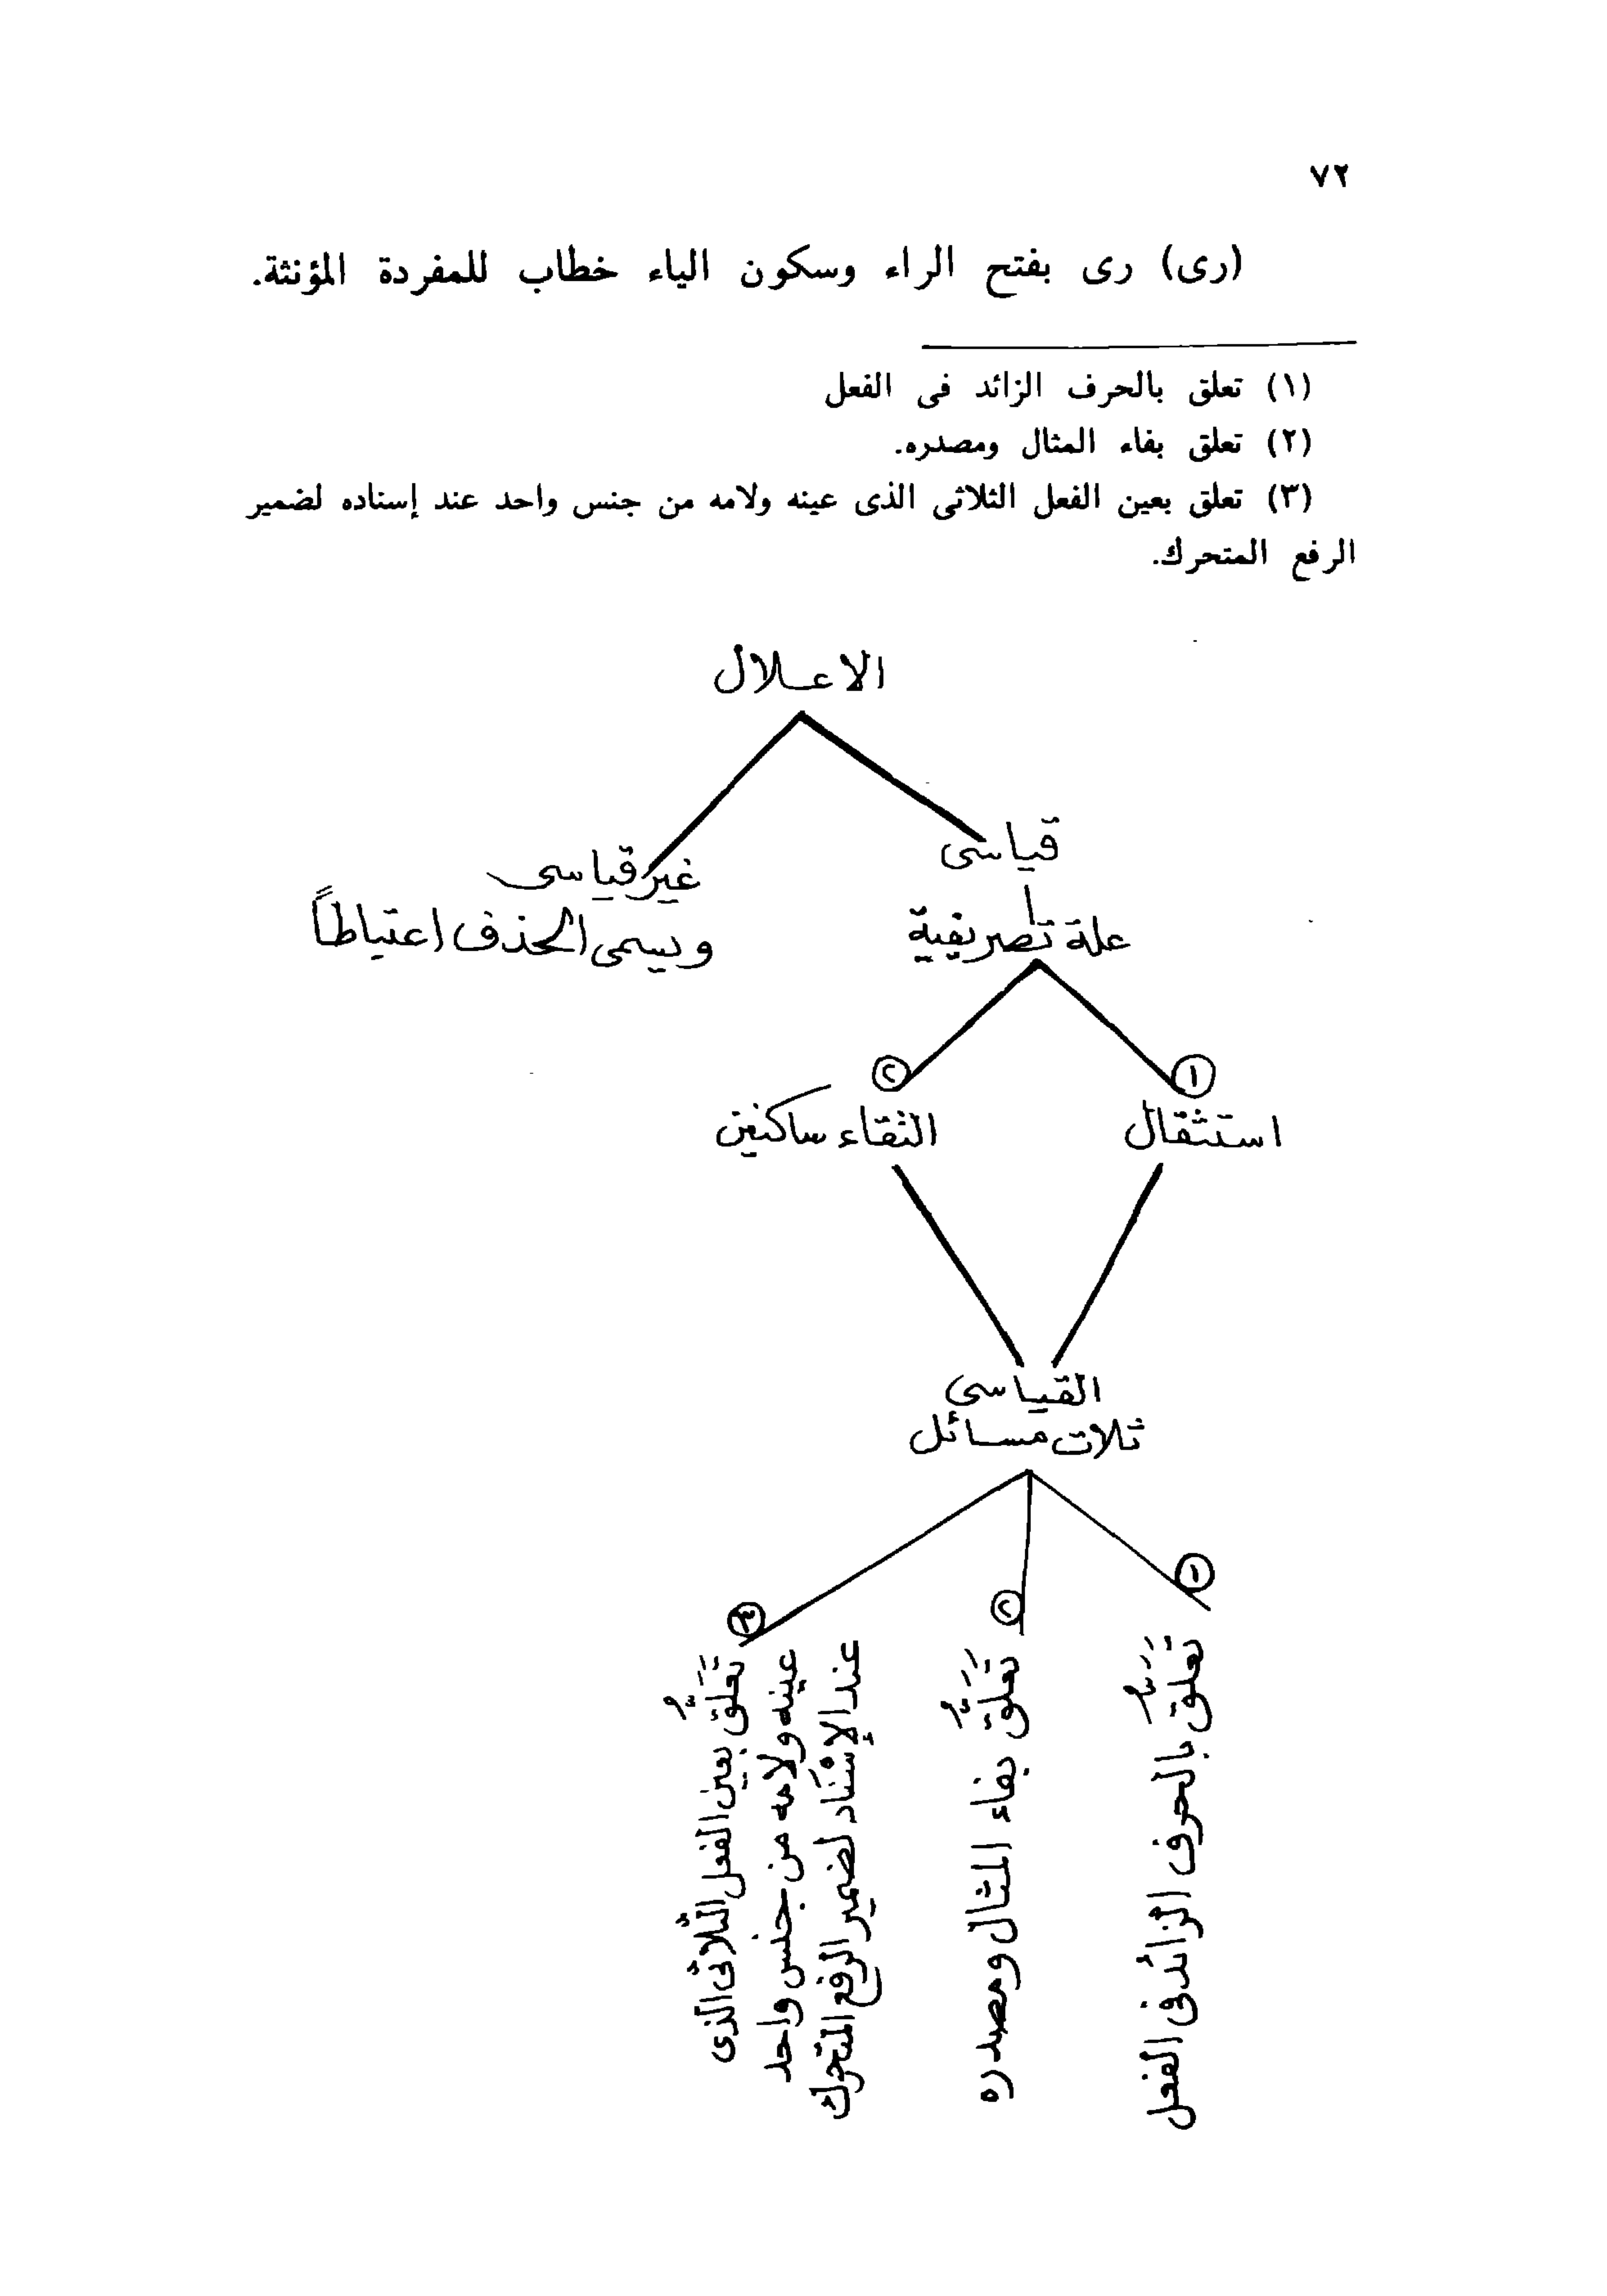 ٧٢
(رى) رى بفتح الراء وسكون الياء خطاب للمفردة المؤنثة.
(١) تعلق بالحرف الزائد فى الفعل
(٢) تعلق بفاء المثال ومصدره.
(٣) تعلق بعين الفعل الثلاثى الذى عينه ولامه من جنس واحد عند إسناده لضمير
الرفع المتحرك.
الاعلال
قياسى
غير قياسى
علة تصريفية
ويسمى الحذف اعتباطاً
١
٢
استثقال
التقاء ساكنين
القياسى
ثلاث مسائل
١
٢
٣
تَعَلُّق بالحرف الزائد فى الفعل
تَعَلُّق بفاء المثال ومصدره
تَعَلُّق بعين الفعل الثلاثى الذى
عينه ولامه من جنس واحد
عند الإسْنَاد لضمير الرفع المتحرك